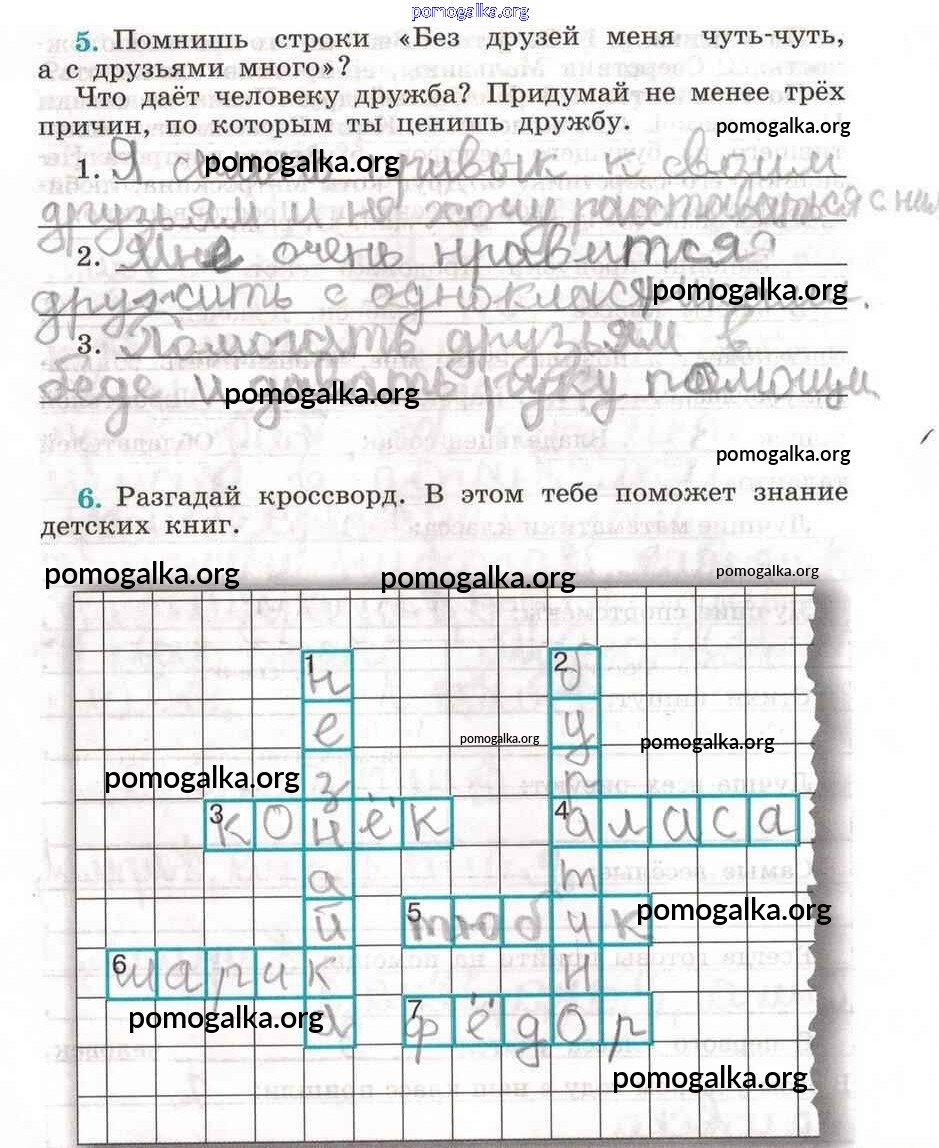 pomogalka.org
5. Помнишь строки «Без друзей меня чуть-чуть,
а с друзьями много»?
Что даёт человеку дружба? Придумай не менее трёх
причин, по которым ты ценишь дружбу.
pomogalka.org
1. Я привык к своим
pomogalka.org
друзьям и не хочу расставаться с ним
2. Мне очень нравится
дружить с
pomogalka.org
3. Помогать друзьям в
беде и давать руку помощи
pomogalka.org
pomogalka.org
6. Разгадай кроссворд. В этом тебе поможет знание
детских книг.
pomogalka.org
pomogalka.org
pomogalka.org
1 н 2 д
е у
pomogalka.org
pomogalka.org
з р
pomogalka.org
3 к о н ё к 4 а л а с а
а т
й 5 т ю б и к
pomogalka.org
6 ш а р и к н
7 ф ё д о р
pomogalka.org
pomogalka.org